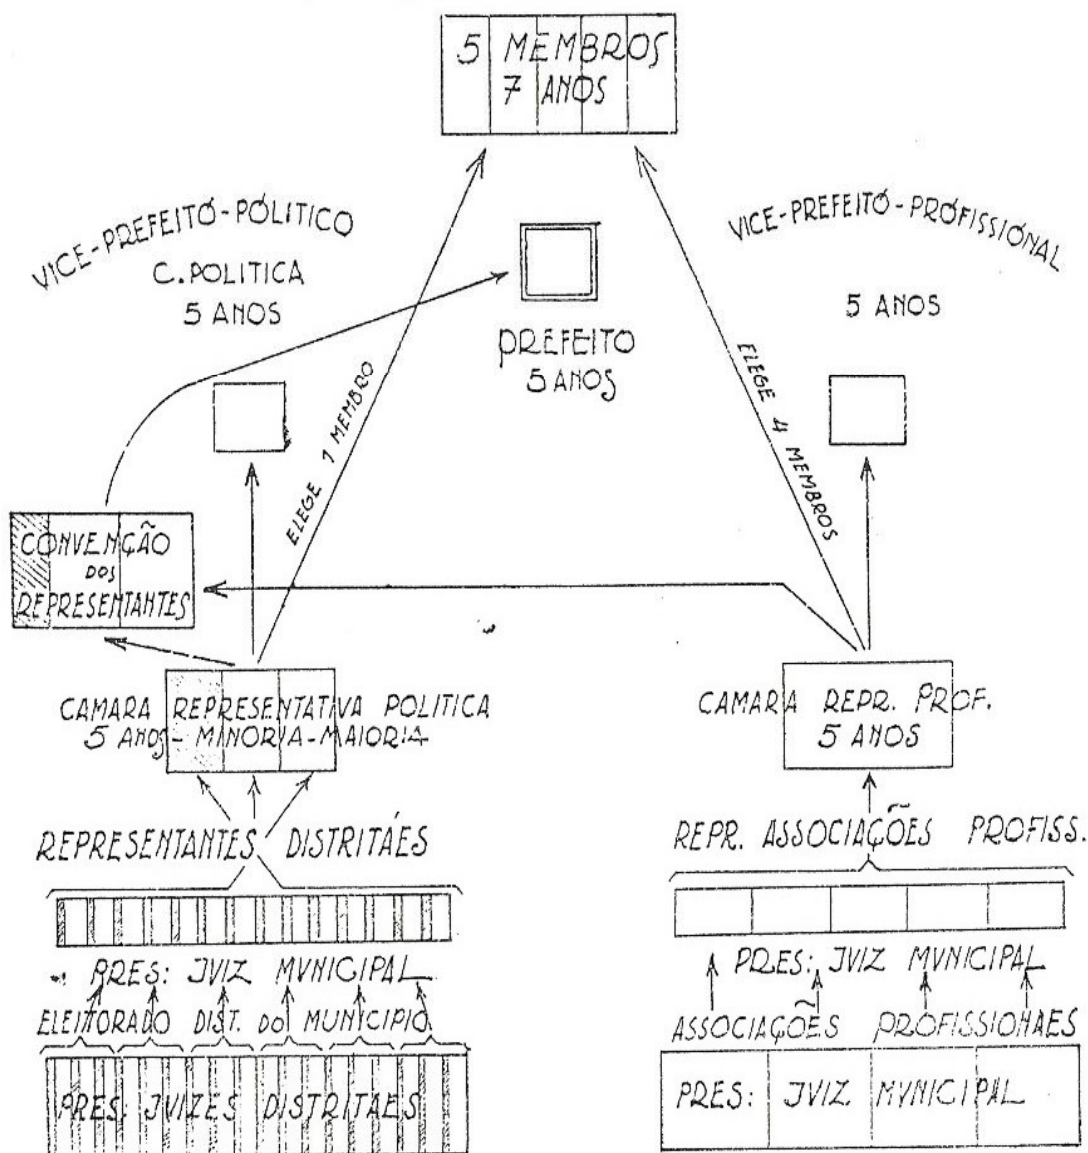 5 MEMBROS
7 ANOS
VICE-PREFEITO-POLITICO
C. POLITICA
5 ANOS
PREFEITO
5 ANOS
VICE-PREFEITO-PROFISSIONAL
5 ANOS
ELEGE 1 MEMBRO
ELEGE 4 MEMBROS
CONVENÇÃO
DOS
REPRESENTANTES
CAMARA REPRESENTATIVA POLITICA
5 ANOS - MINORIA - MAIORIA
CAMARA REPR. PROF.
5 ANOS
REPRESENTANTES DISTRITÁES
REPR. ASSOCIAÇÕES PROFISS.
PRES: JVIZ MVNICIPAL
PRES: JVIZ MVNICIPAL
ELEITORADO DIST. DO MUNICIPIO
ASSOCIAÇÕES PROFISSIONAES
PRES: JVIZES DISTRITAES
PRES: JVIZ MVNICIPAL